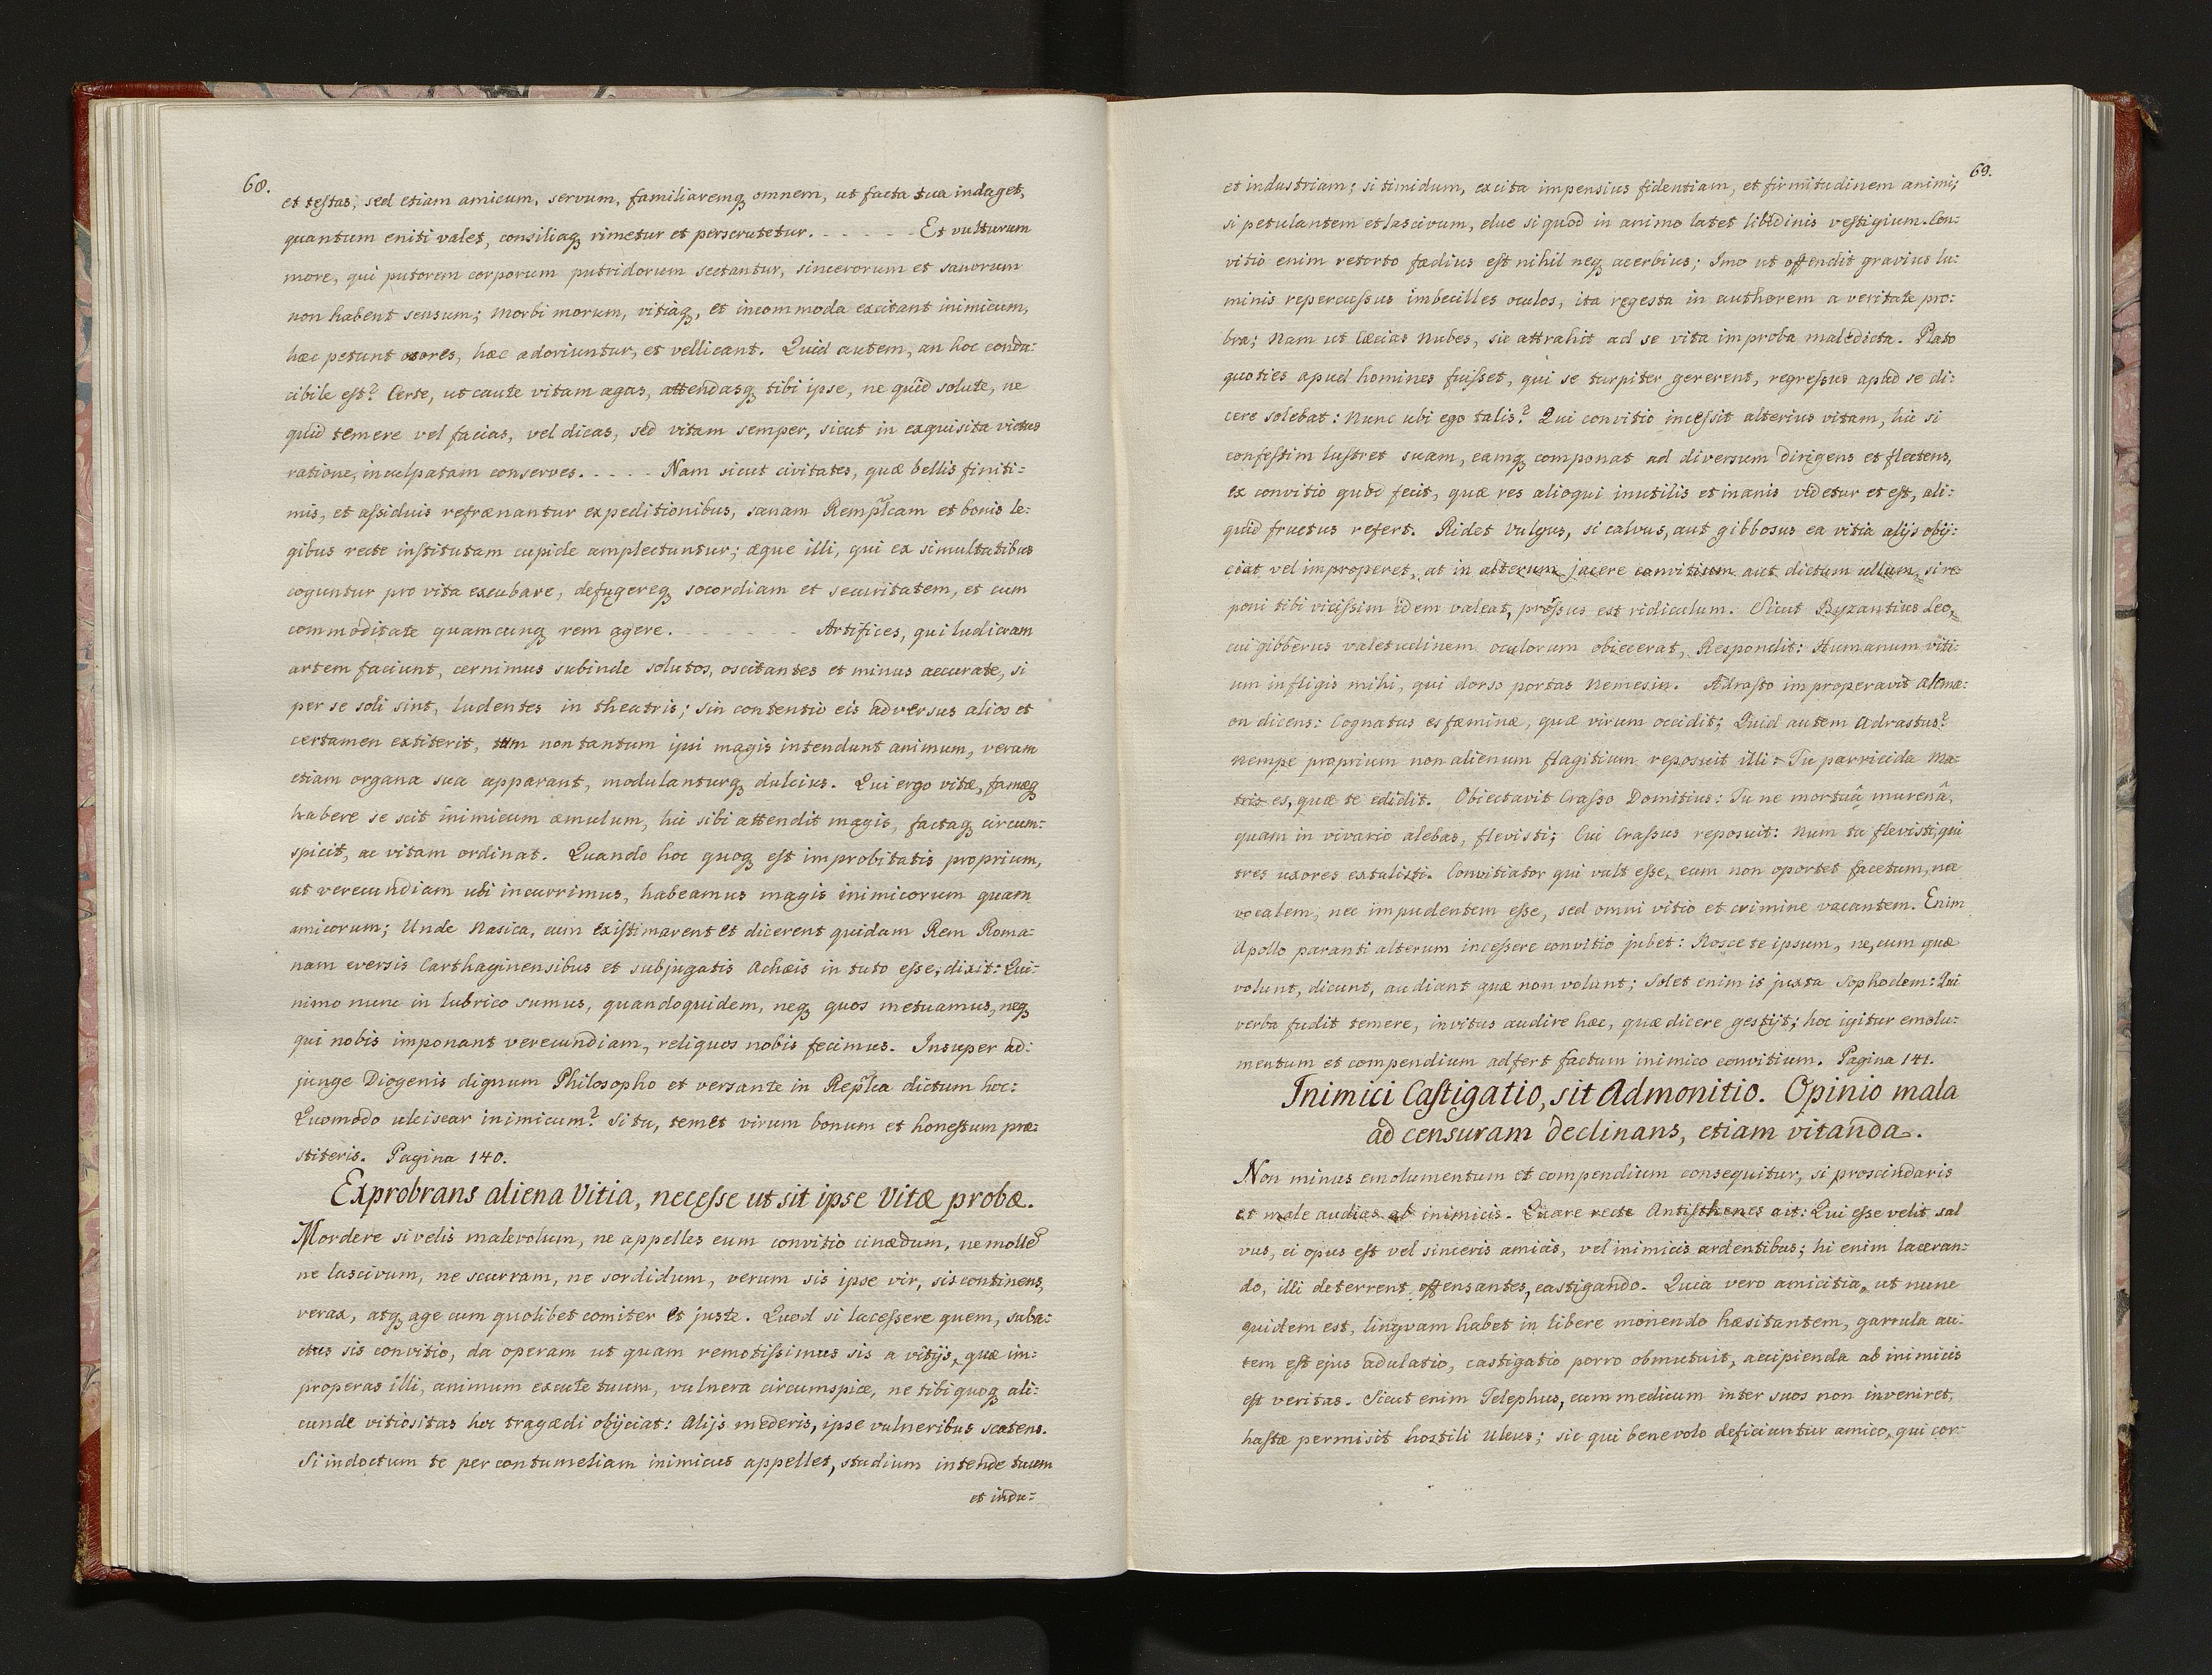 68.
et testas, sed etiam amicum, servum, familiaremq omnem, ut facta tua indaget,
quantum eniti valet, consiliaq rimetur et perscrutetur. - - - - - - Et vulturum
more, qui putorem corporum putridorum sectantur, sincerorum et sanorum
non habent sensum; Morbi morum, vitiaq, et incommoda excitant inimicum,
hæc petunt osores, hæc adoriuntur, et vellicant. Quid autem, an hoc condu:
cibile est? Certe, ut caute vitam agas, attendasq tibi ipse, ne quid solute, ne
quid temere vel facias, vel dicas, sed vitam semper, sicut in exquisita victus
ratione, inculpatam conserves. - - - - Nam sicut civitates, quæ bellis finiti:
mis, et assiduis refrænantur expeditionibus, sanam Remplcam et bonis le:
gibus recte institutam cupide amplectuntur; æque illi, qui ex simultatibus
coguntur pro vita excubare, defugereq socordiam et securitatem, et cum
commoditate quamcunq rem agere. - - - - - - Artifices, qui ludicram
artem faciunt, cernimus subinde solutos, oscitantes et minus accurate, si
per se soli sint, ludentes in theatris; sin contentio eis adversus alios et
certamen extiterit, tum non tantum ipsi magis intendunt animum, verum
etiam organa sua apparant, modulanturq dulcius. Qui ergo vitæ, famæq
habere se scit inimicum æmulum, hic sibi attendit magis, factaq circum:
spicit, ac vitam ordinat. Quando hoc quoq est improbitatis proprium,
ut verecundiam ubi incurrimus, habeamus magis inimicorum quam
amicorum; Unde Nasica, cum existimarent et dicerent quidam Rem Roma:
nam eversis Carthaginensibus et subjugatis Achæis in tuto esse, dixit: Qui:
nimo nunc in lubrico sumus, quandoquidem, neq quos metuamus, neq
qui nobis imponant verecundiam, reliquos nobis fecimus. Insuper ad:
junge Diogenis dignum Philosopho et versante in Replca dictum hoc:
Quomodo ulciscar inimicum? Si tu, temet virum bonum et honestum præ:
stiteris. Pagina 140.
Exprobrans aliena Vitia, necesse ut sit ipse Vitæ probæ.
Mordere si velis malevolum, ne appelles eum convitio cinædum, ne molle
ne lascivum, ne scurram, ne sordidum, verum sis ipse vir, sis continens,
verax, atq age cum quolibet comiter et juste. Quod si lacessere quem, suba:
ctus sis convitio, da operam ut quam remotissimus sis a vitijs, quæ im:
properas illi, animum excute tuum, vulnera circumspice, ne tibi quoq ali:
cunde vitiositas hoc tragædi obijciat: Alijs mederis, ipse vulneribus scatens.
Si indoctum te per contumeliam inimicus appellet, studium intende tuum
et indu:
69.
et industriam; si timidum, excita impensius fidentiam, et firmitudinem animi;
si petulantem et lascivum, elue si quod in animo latet libidinis vestigium. Con:
vitio enim retorto fædius est nihil neq acerbius; Imo ut offendit gravius lu:
minis repercussus imbecilles oculos, ita regesta in authorem a veritate pro:
bra; Nam ut Cæcias Nubes, sic attrahit ad se vita improba maledicta. Plato
quoties apud homines fuisset, qui se turpiter gererent, regressus apud se di:
cere solebat: Nunc ubi ego talis? Qui convitio incessit alterius vitam, hic si
confestim lustret suam, eamq componat ad diversum dirigens et flectens,
ex convitio quod fecit, quæ res alioqui inutilis et inanis videtur et est, ali:
quid fructus refert. Ridet Vulgus, si calvus, aut gibbosus ea vitia alijs obij:
ciat vel improperet, at in alterum jacere convitium aut dictum ullum, si re
poni tibi vicissim idem valeat, prorsus est ridiculum. Sicut Byzantius Leo,
cui gibberus valetudinem oculorum obiecerat, Respondit: Humanum viti:
um infligis mihi, qui dorso portas Nemesin. Adrasto improperavit Alcmæ:
on dicens: Cognatus es fæminæ, quæ virum occidit; Quid autem Adrastus?
nempe proprium non alienum flagitium reposuit illi: Tu parricida Ma:
tris es, quæ te edidit. Obiectavit Crasso Domitius: Tu ne mortuâ murenâ,
quam in vivario alebas, flevisti; Cui Crassus reposuit: Num tu flevisti, qui
tres uxores extulisti. Convitiator qui vult esse, eum non oportet facetum, ne
vocalem, nec impudentem esse, sed omni vitio et crimine vacantem. Enim
Apollo paranti alterum incessere convitio jubet: Nosce te ipsum, ne, cum quæ
volunt, dicunt, audiant quæ non volunt; Solet enim is juxta Sophoclem: Qui
verba fudit temere, invitus audire hæc, quæ dicere gestijt; hoc igitur emolu:
mentum et compendium adfert factum inimico convitium. Pagina 141.
Inimici Castigatio, sit Admonitio. Opinio mala
ad censuram declinans, etiam vitanda.
Non minus emolumentum et compendium consequitur, si proscindaris
et male audias ab inimicis. Quare recte Antisthenes ait: Qui esse velit sal
vus, ei opus est vel sinceris amicis, vel inimicis ardentibus; hi enim laceran:
do, illi deterrent offensantes, castigando. Quia vero amicitia, ut nunc
quidem est, lingvam habet in libere monendo hæsitantem, garrula au:
tem est ejus adulatio, castigatio porro obmutuit, accipienda ab inimicis
est veritas. Sicut enim Telephus, cum medicum inter suos non inveniret,
hastæ permisit hostili Ulcus; sic qui benevolo deficiuntur amico, qui cor: